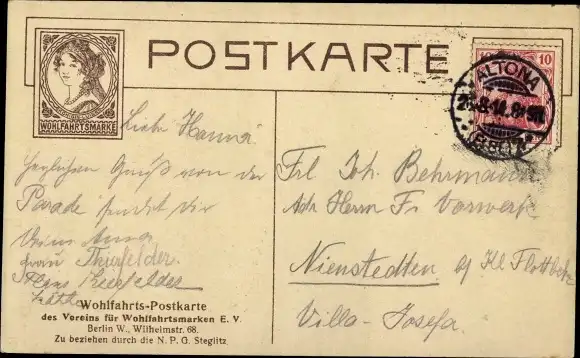 POSTKARTE
WOHLFAHRTSMARKE
10
ALTONA
Liebe Hanna
herzlichen Gruß von der
Parade sendet dir
Deine Anna
Frau Thurfelder
Frl. Joh. Behrmann
Adr. Herrn Fr. Vorwerk
Nienstedten b/ Kl Flottbek
Villa-Josefa.
Wohlfahrts-Postkarte
des Vereins für Wohlfahrtsmarken E. V.
Berlin W., Wilhelmstr. 68.
Zu beziehen durch die N. P. G. Steglitz.